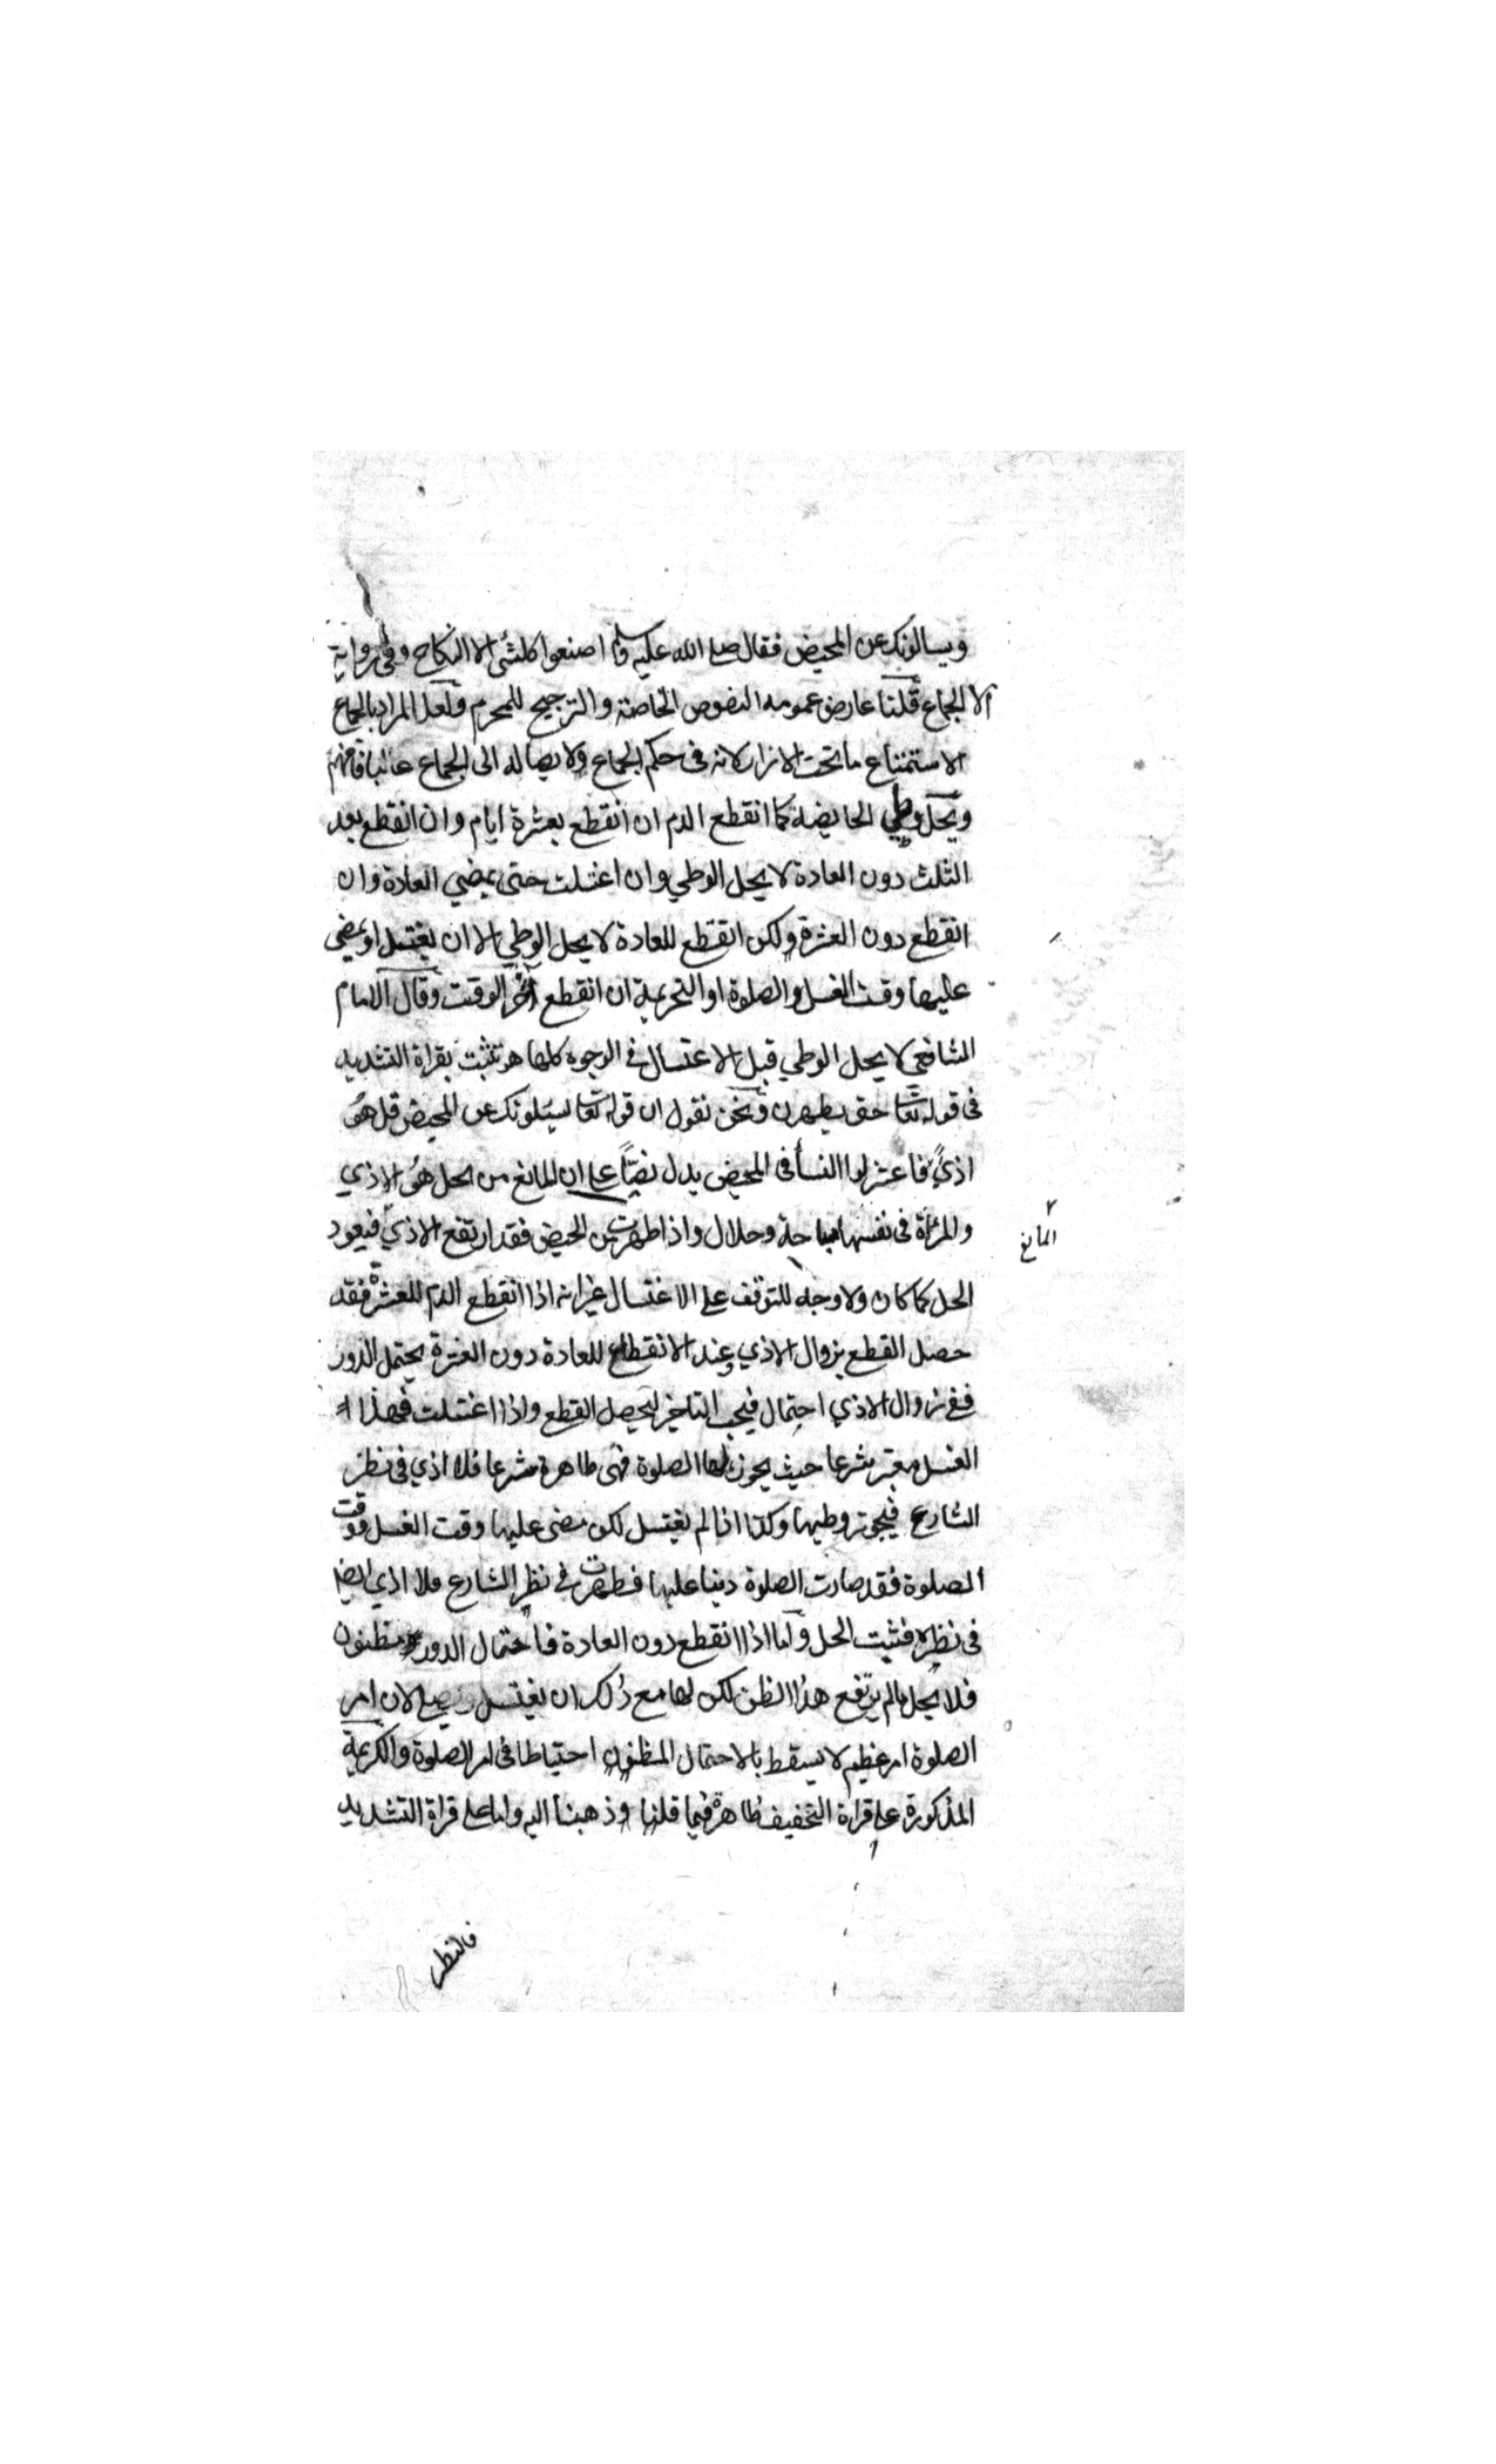 ويسالونك عن المحيض فقال صلى الله عليه وسلم اصنعوا كلشئ الا النكاح وفى رواية
الا الجماع قلنا عارض عمومه النصوص الخاصة والترجيح للمحرم ولعل المراد بالجماع
الاستمتاع ما تحت الازار لانه فى حكم الجماع ولايصاله الى الجماع غالبا فافهم
ويحل وطي الحايضة كما انقطع الدم ان انقطع بعشرة ايام وان انقطع بعد
الثلث دون العادة لا يحل الوطي وان اغتسلت حتى يمضي العادة وان
انقطع دون العشرة ولكن انقطع للعادة لا يحل الوطي الا ان يغتسل او يمضى
عليها وقت الغسل والصلوة او التحريمة ان انقطع آخر الوقت وقال الامام
الشافعي لا يحل الوطي قبل الاغتسال في الوجوه كلها هو تثبت بقراة التشديد
فى قوله تعا حتى يطهرن ونحن نقول ان قوله تعا يسئلونك عن المحيض قل هو
اذىً فاعتزلوا النسأ فى المحيض يدل نصّاً على ان المانع من الحل هُو الاذي
والمرأة فى نفسها مباحة وحلال واذا طهرت من الحيض فقد ارتفع الاذي فيعود
المانع
الحل كما كان ولا وجه للتوقف على الاغتسال غير انه اذا انقطع الدم للعشرة فقد
حصل القطع بزوال الاذي وعند الانقطاع للعادة دون العشرة يحتمل الدور
ففي زوال الاذي احتمال فيجب التاخير ليحصل القطع واذا اغتسلت فهذا
الغسل معتبر شرعا حيث يجوز لها الصلوة فهى طاهرة شرعا فلا اذي فى نظر
الشارع فيجوز وطيها وكذا اذا لم يغتسل لكن مضى عليها وقت الغسل ووقت
الصلوة فقد صارت الصلوة دينا عليها فطهرت في نظر الشارع فلا اذي ايضا
فى نظره فثبت الحل واما اذا انقطع دون العادة فاحتمال الدور مظنون
فلا يحل مالم يرتفع هذا الظن لكن لها مع ذلك ان يغتسل ويصلى لان امر
الصلوة امر عظيم لا يسقط بالاحتمال المظنون احتياطا فى امر الصلوة والكريمة
المذكورة على قراة التخفيف ظاهرة فيما قلنا وذهبنا اليه واما على قراة التشديد
فالنظر